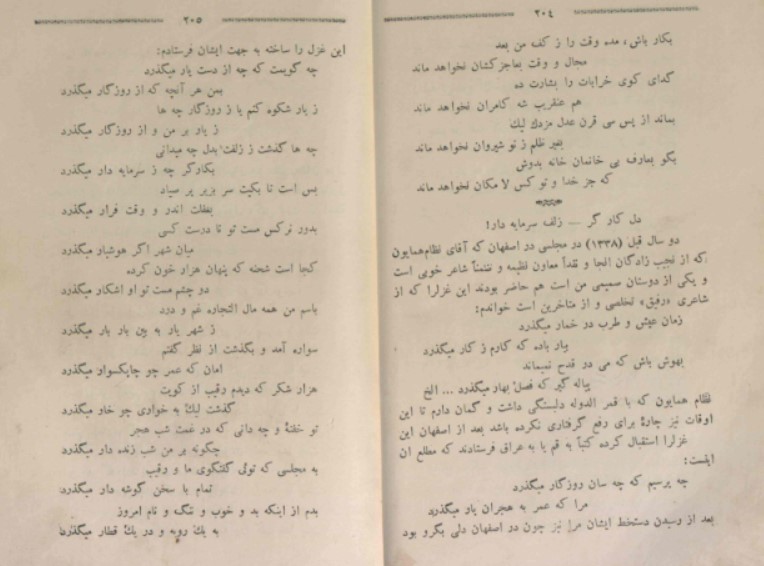 ۲۰۴
بکار باش، مده وقت را ز کف من بعد
مجال و وقت بعاجزکشان نخواهد ماند
گدای کوی خرابات را بشارت ده
هم عنقریب شه کامران نخواهد ماند
بماند از پس سی قرن عدل مزدك لیك
بغیر ظلم ز نو شیروان نخواهد ماند
بگو بعارف بی خانمان خانه بدوش
که جز خدا و تو کس لا مکان نخواهد ماند
دل کار گر — زلف سرمایه دار!
دو سال قبل (۱۳۳۸) در مجلسی در اصفهان که آقای نظام‌همایون
که از نجیب زادگان آنجا و نقداً معاون نظمیه و ضمناً شاعر خوبی است
و یکی از دوستان صمیمی من است هم حاضر بودند این غزلرا که از
شاعری «رفیق» تخلصی و از متاخرین است خواندم:
زمان عیش و طرب در خمار میگذرد
بیار باده که کارم ز کار میگذرد
بهوش باش که می در قدح نمیماند
پیاله گیر که فصل بهار میگذرد ... الخ
نظام همایون که با قمر الدوله دلبستگی داشت و گمان دارم تا این
اوقات نیز چارهٔ برای رفع گرفتاری نکرده باشد بعد از اصفهان این
غزلرا استقبال کرده کتباً به قم یا به عراق فرستادند که مطلع آن
اینست:
چه پرسیم که چه سان روزگار میگذرد
مرا که عمر به هجران یار میگذرد
بعد از رسیدن دستخط ایشان مرا نیز چون در اصفهان دلی بگرو بود
۲۰۵
این غزل را ساخته به جهت ایشان فرستادم:
چه گویمت که چه از دست یار میگذرد
بمن هر آنچه که از روزگار میگذرد
ز یار شکوه کنم یا ز روزگار چه ها
ز یار بر من و از روزگار میگذرد
چه ها گذشت ز زلفت بدل چه میدانی
بکارگر چه ز سرمایه دار میگذرد
بس است تا بکیت سر بزیر پر صیاد
بغفلت اندر و وقت فرار میگذرد
بدور نرکس مست تو تا درست کسی
میان شهر اگر هوشیار میگذرد
کجا است شحنه که پنهان هزار خون کرده
دو چشم مست تو و آشکار میگذرد
باسم من همه مال التجاره غم و درد
ز شهر یار به بین بار بار میگذرد
سواره آمد و بگذشت از نظر گفتم
امان که عمر چو چاپکسوار میگذرد
هزار شکر که دیدم رقیب از کویت
گذشت لیك به خواری چو خار میگذرد
تو خفتهٔ و چه دانی که در غمت شب هجر
چگونه بر من شب زنده دار میگذرد
به مجلسی که توئی گفتگوی ما و رقیب
تمام با سخن گوشه دار میگذرد
بدم از اینکه بد و خوب و ننگ و نام امروز
به یك رویه و در یك قطار میگذرد